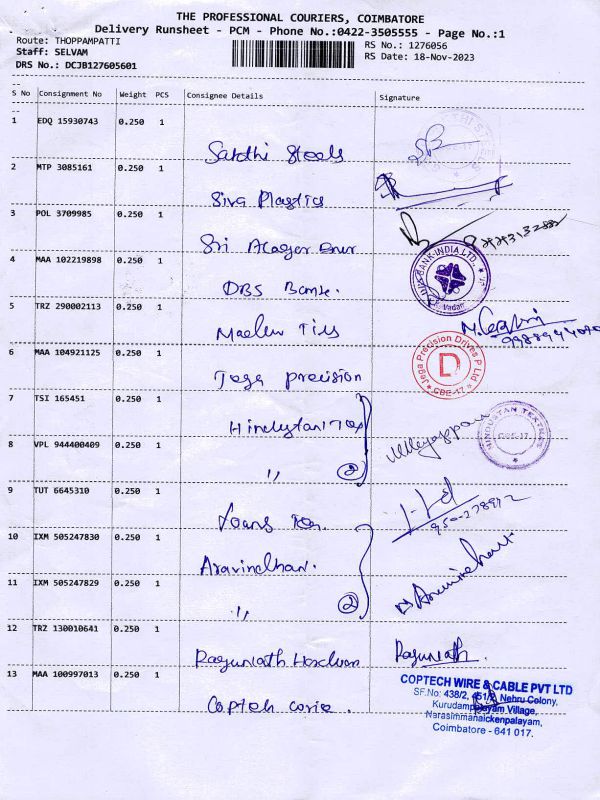 THE PROFESSIONAL COURIERS, COIMBATORE
Delivery Runsheet - PCM - Phone No.:0422-3505555 - Page No.:1
Route: THOPPAMPATTI RS No.: 1276056
Staff: SELVAM RS Date: 18-Nov-2023
DRS No.: DCJB127605601
S No Consignment No Weight PCS Consignee Details Signature
1 EDQ 15930743 0.250 1
Sakthi Steels
2 MTP 3085161 0.250 1
Siva Plastics
3 POL 3709985 0.250 1
Sri
4 MAA 102219898 0.250 1
DBS Bank.
BANK INDIA LTD.
5 TRZ 290002113 0.250 1
6 MAA 104921125 0.250 1
Jega precision
Jega Precision Drives P Ltd
D
CBE-17
7 TSI 165451 0.250 1
Hindustan Tex
HINDUSTAN TEXTILES
8 VPL 944400409 0.250 1
,, 2
9 TUT 6645310 0.250 1
10 IXM 505247830 0.250 1
Aravindhan.
11 IXM 505247829 0.250 1
,, 2
12 TRZ 130010641 0.250 1
Ragunath Ragunath.
13 MAA 100997013 0.250 1
Coptech
COPTECH WIRE & CABLE PVT LTD
SF.No: 438/2, 451/2, Nehru Colony,
Kurudampalayam Village,
Narasimmanaickenpalayam,
Coimbatore - 641 017.